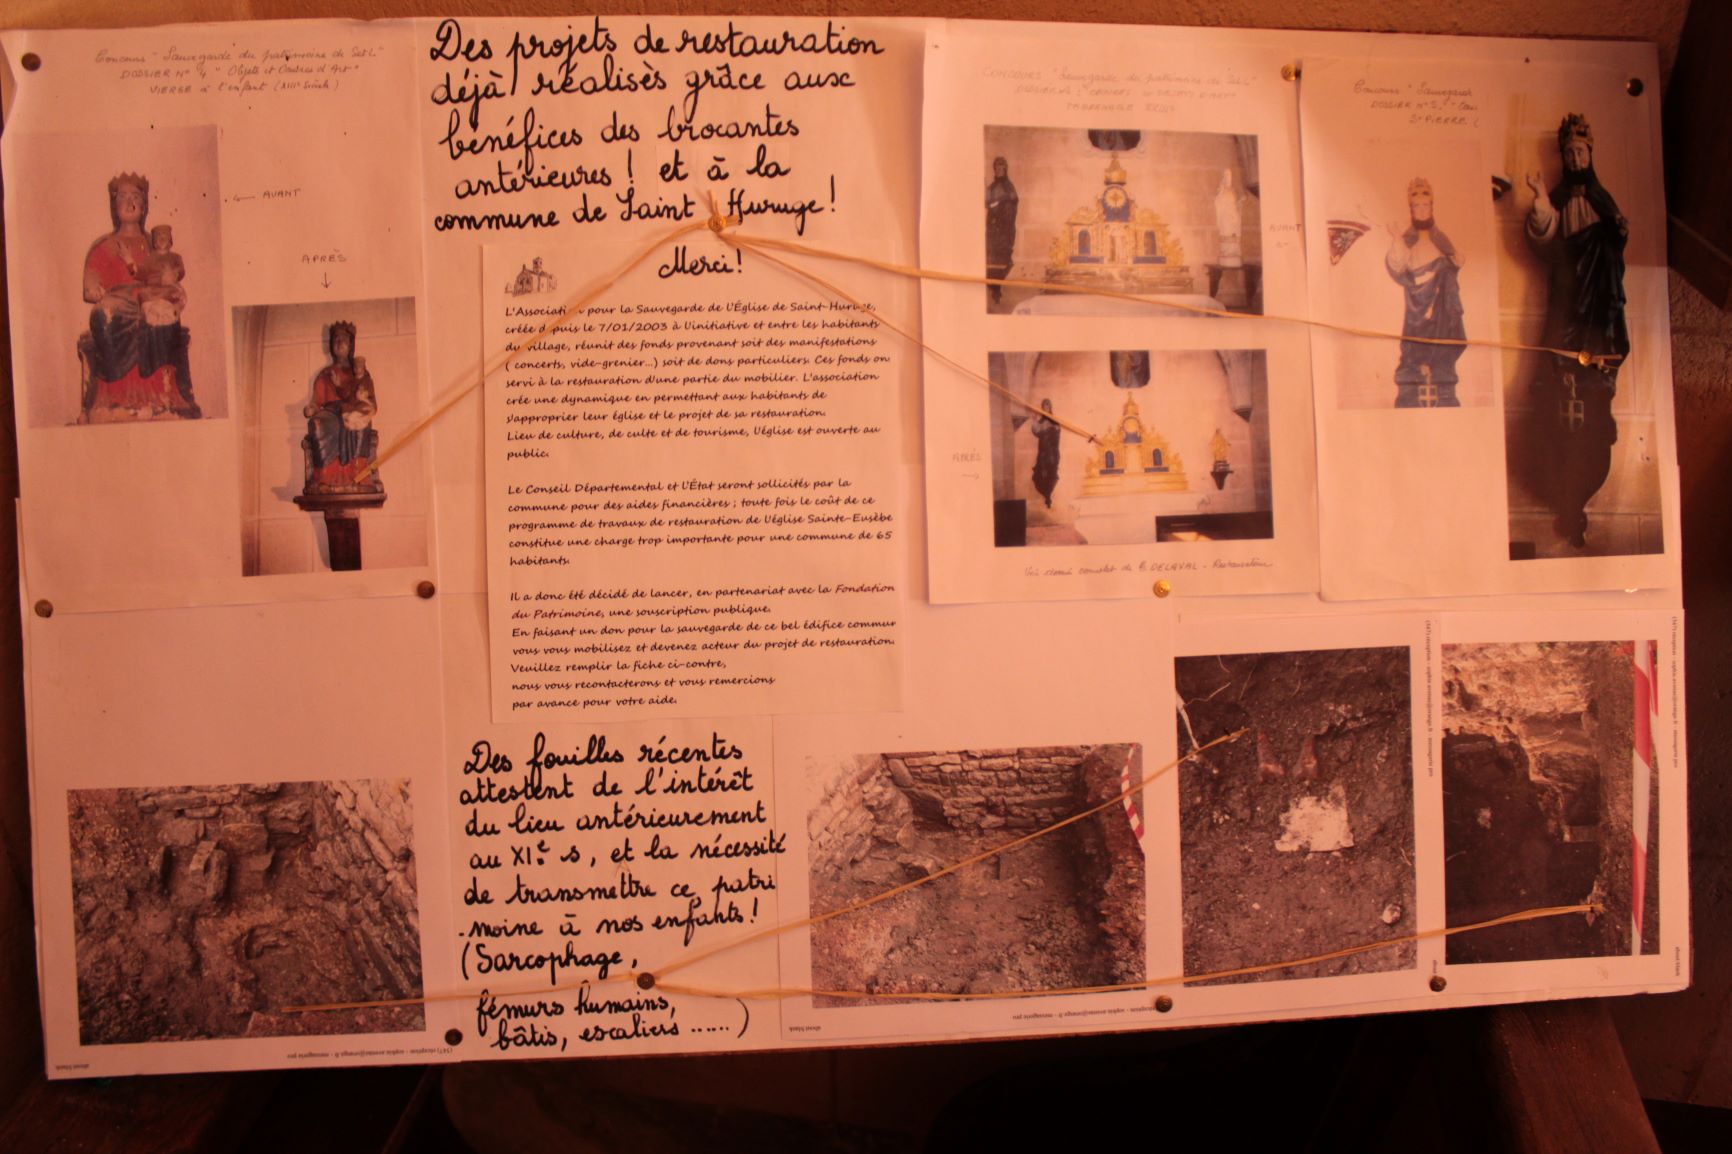 Concours "Sauvegarde du patrimoine de S et L"
DOSSIER N° 4 "Objets et Oeuvres d'Art"
VIERGE à l'enfant (XIIIe Siècle)
AVANT
APRÈS
Des projets de restauration
déjà réalisès grâce aux
bénéfices des brocantes
antérieures ! et à la
commune de Saint Huruge !
Merci !
L'Association pour la Sauvegarde de L'Église de Saint-Huruge,
créée depuis le 7/01/2003 à l'initiative et entre les habitants
du village, réunit des fonds provenant soit des manifestations
( concerts, vide-grenier...) soit de dons particuliers. Ces fonds on
servi à la restauration d'une partie du mobilier. L'association
crée une dynamique en permettant aux habitants de
s'approprier leur église et le projet de sa restauration.
Lieu de culture, de culte et de tourisme, l'église est ouverte au
public.
Le Conseil Départemental et L'État seront sollicités par la
commune pour des aides financières ; toute fois le coût de ce
programme de travaux de restauration de l'église Sainte-Eusèbe
constitue une charge trop importante pour une commune de 65
habitants.
Il a donc été décidé de lancer, en partenariat avec la Fondation
du Patrimoine, une souscription publique.
En faisant un don pour la sauvegarde de ce bel édifice commun
vous vous mobilisez et devenez acteur du projet de restauration.
Veuillez remplir la fiche ci-contre,
nous vous recontacterons et vous remercions
par avance pour votre aide.
CONCOURS "Sauvegarde du patrimoine de S et L"
TABERNACLE
AVANT
APRÈS
DELAVAL - Restauration
Concours "Sauvegarde
DOSSIER N° 5
St PIERRE
Des fouilles récentes
attestent de l'intérêt
du lieu antérieurement
au XIe s, et la nécessité
de transmettre ce patri
-moine à nos enfants !
(Sarcophage,
fémurs humains,
bâtis, escaliers ......)